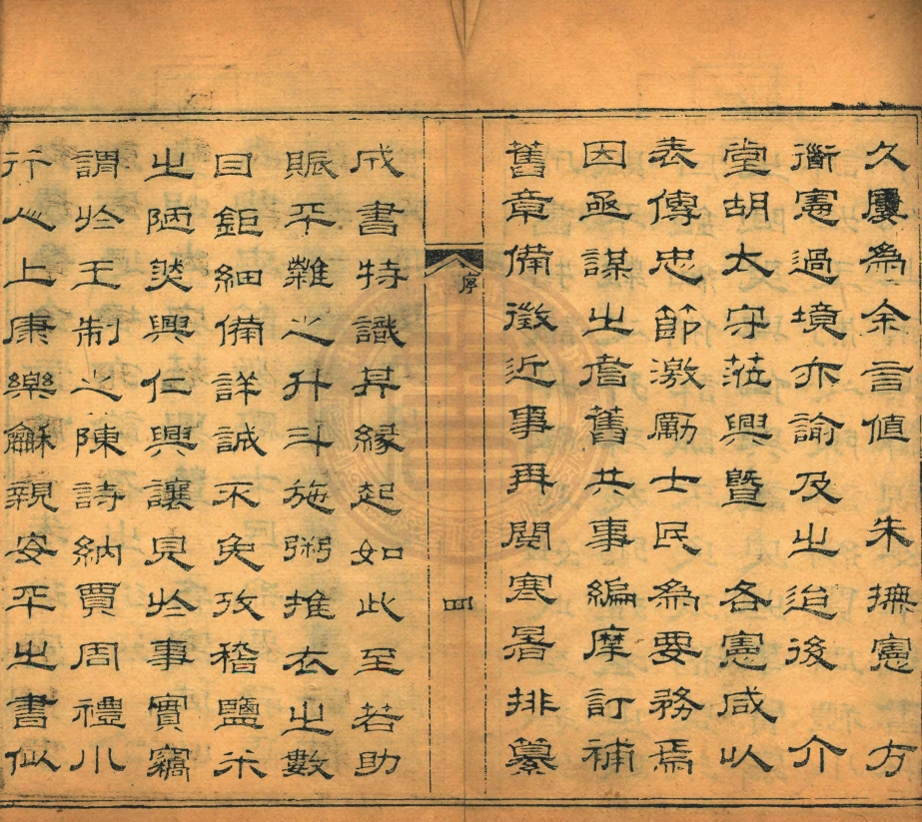 久屢為余言值 朱撫憲 方
衟憲過境亦諭及之迨後 介
堂胡太守蒞興暨 各憲咸以
表傳忠節激勵士民為要務焉
因亟謀之耆舊共事編摩訂補
舊章備徵近事再閱寒暑排纂
序
四
成書特識其緣起如此至若助
賑平之升斗施粥推衣之數
目鉅細備詳誠不免攷稽鹽米
之陋然興仁興讓見於事實竊
謂於王制之陳詩納賈周禮小
行人上康樂龢親安平之書似